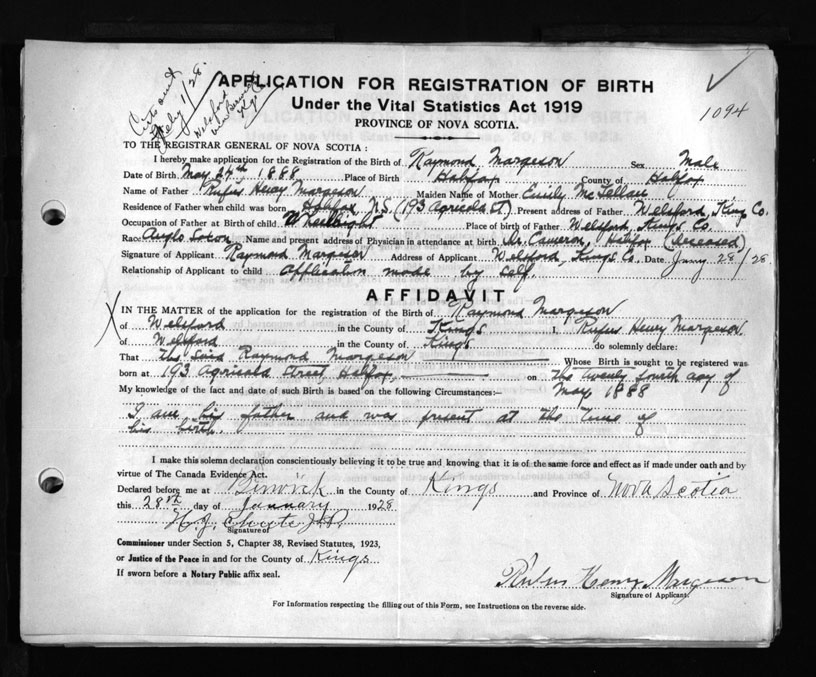 Feby 1/28.
APPLICATION FOR REGISTRATION OF BIRTH
Under the Vital Statistics Act 1919
1094
PROVINCE OF NOVA SCOTIA.
TO THE REGISTRAR GENERAL OF NOVA SCOTIA :
I hereby make application for the Registration of the Birth of Raymond Margeson Sex Male
Date of Birth May 24th 1888 Place of Birth Halifax County of Halifax
Name of Father Rufus Henry Margeson Maiden Name of Mother Emily McLellan
Residence of Father when child was born Halifax N.S. (193 Agricola St.) Present address of Father Welsford, Kings Co.
Occupation of Father at Birth of child Wheelright Place of birth of Father Welsford, Kings Co.
Race Anglo Saxon Name and present address of Physician in attendance at birth Dr. Cameron, Halifax (deceased)
Signature of Applicant Raymond Margeson Address of Applicant Welsford, Kings Co. Date Janry 28/28.
Relationship of Applicant to child Application made by self.
AFFIDAVIT
IN THE MATTER of the application for the registration of the Birth of Raymond Margeson
of Welsford in the County of Kings I, Rufus Henry Margeson
of Welsford in the County of Kings do solemnly declare:
That the said Raymond Margeson Whose Birth is sought to be registered was
born at 193 Agricola Street, Halifax, on the twenty fourth day of
May 1888
My knowledge of the fact and date of such Birth is based on the following Circumstances:—
I am his father and was present at the time of
his birth.
I make this solemn declaration conscientiously believing it to be true and knowing that it is of the same force and effect as if made under oath and by
virtue of The Canada Evidence Act.
Declared before me at in the County of Kings and Province of Nova Scotia
this 28th day of January 1928
H. J. Chute J.P.
Signature of
Commissioner under Section 5, Chapter 38, Revised Statutes, 1923,
or Justice of the Peace in and for the County of Kings
If sworn before a Notary Public affix seal.
Rufus Henry Margeson
Signature of Applicant.
For Information respecting the filling out of this Form, see Instructions on the reverse side.